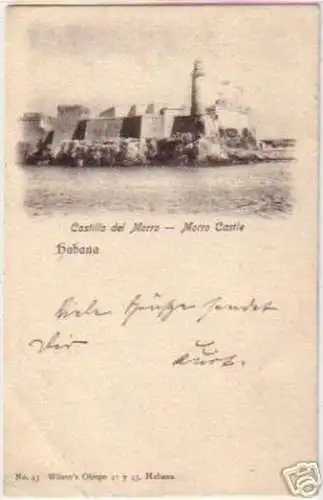 Castillo del Morro — Morro Castle
Habana
Viele Grüße sendet
Dir Kurt.
No. 43 Wilson's Obispo 41 y 43, Habana